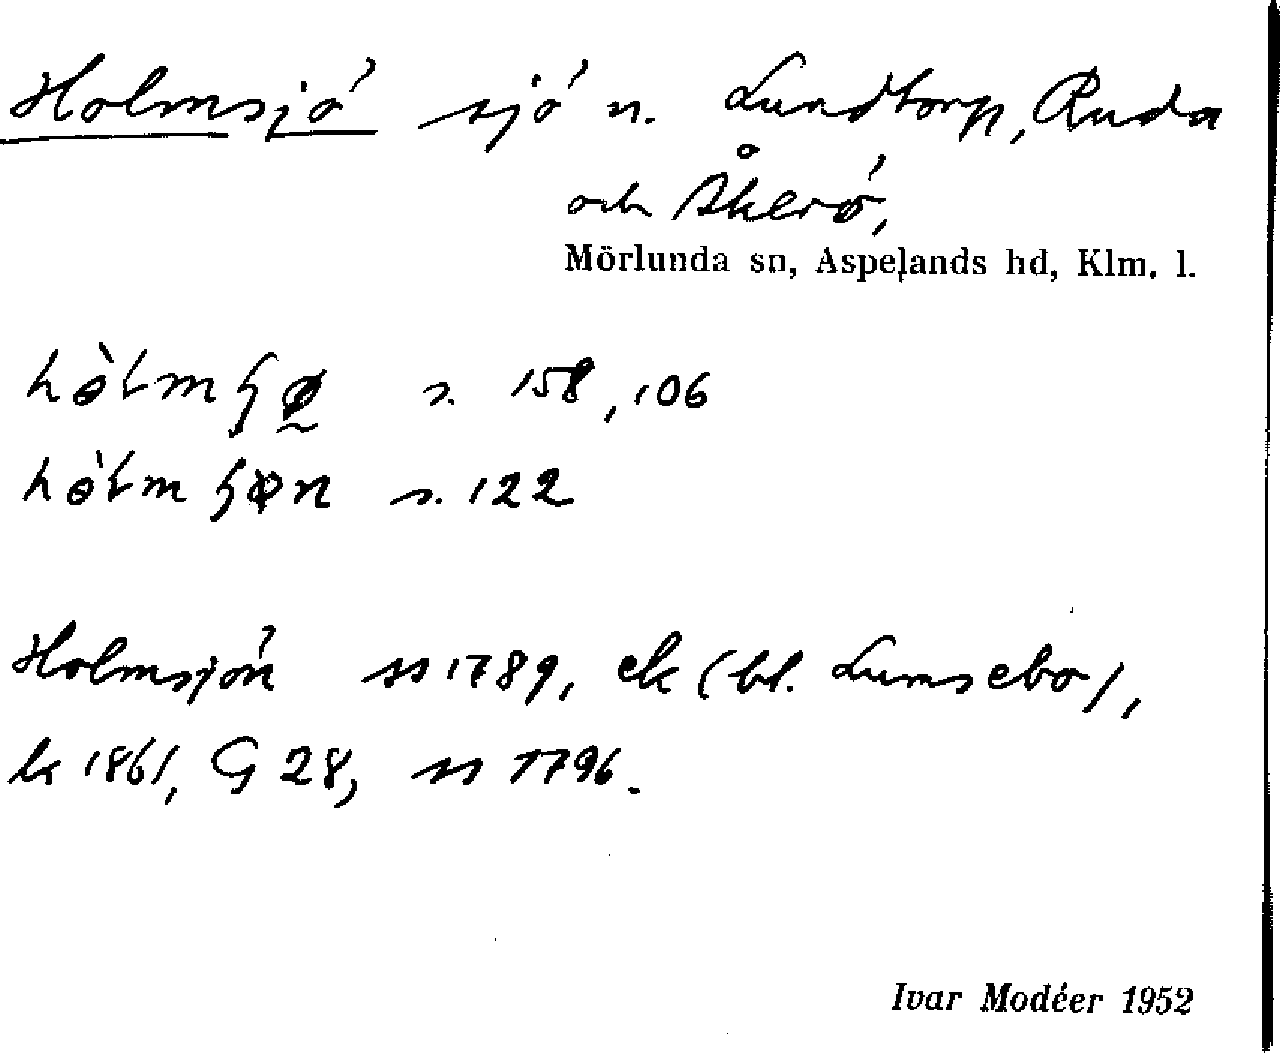 Holmsjö sjö n. Lundtorp, Ruda
och Åkerö,
Mörlunda sn, Aspelands hd, Klm. l.
s. 158, 106
s. 122
Holmsjön ss 1789, ek (bl. Lumsebo),
lk 1861, G 28, ss 1796.
Ivar Modéer 1952